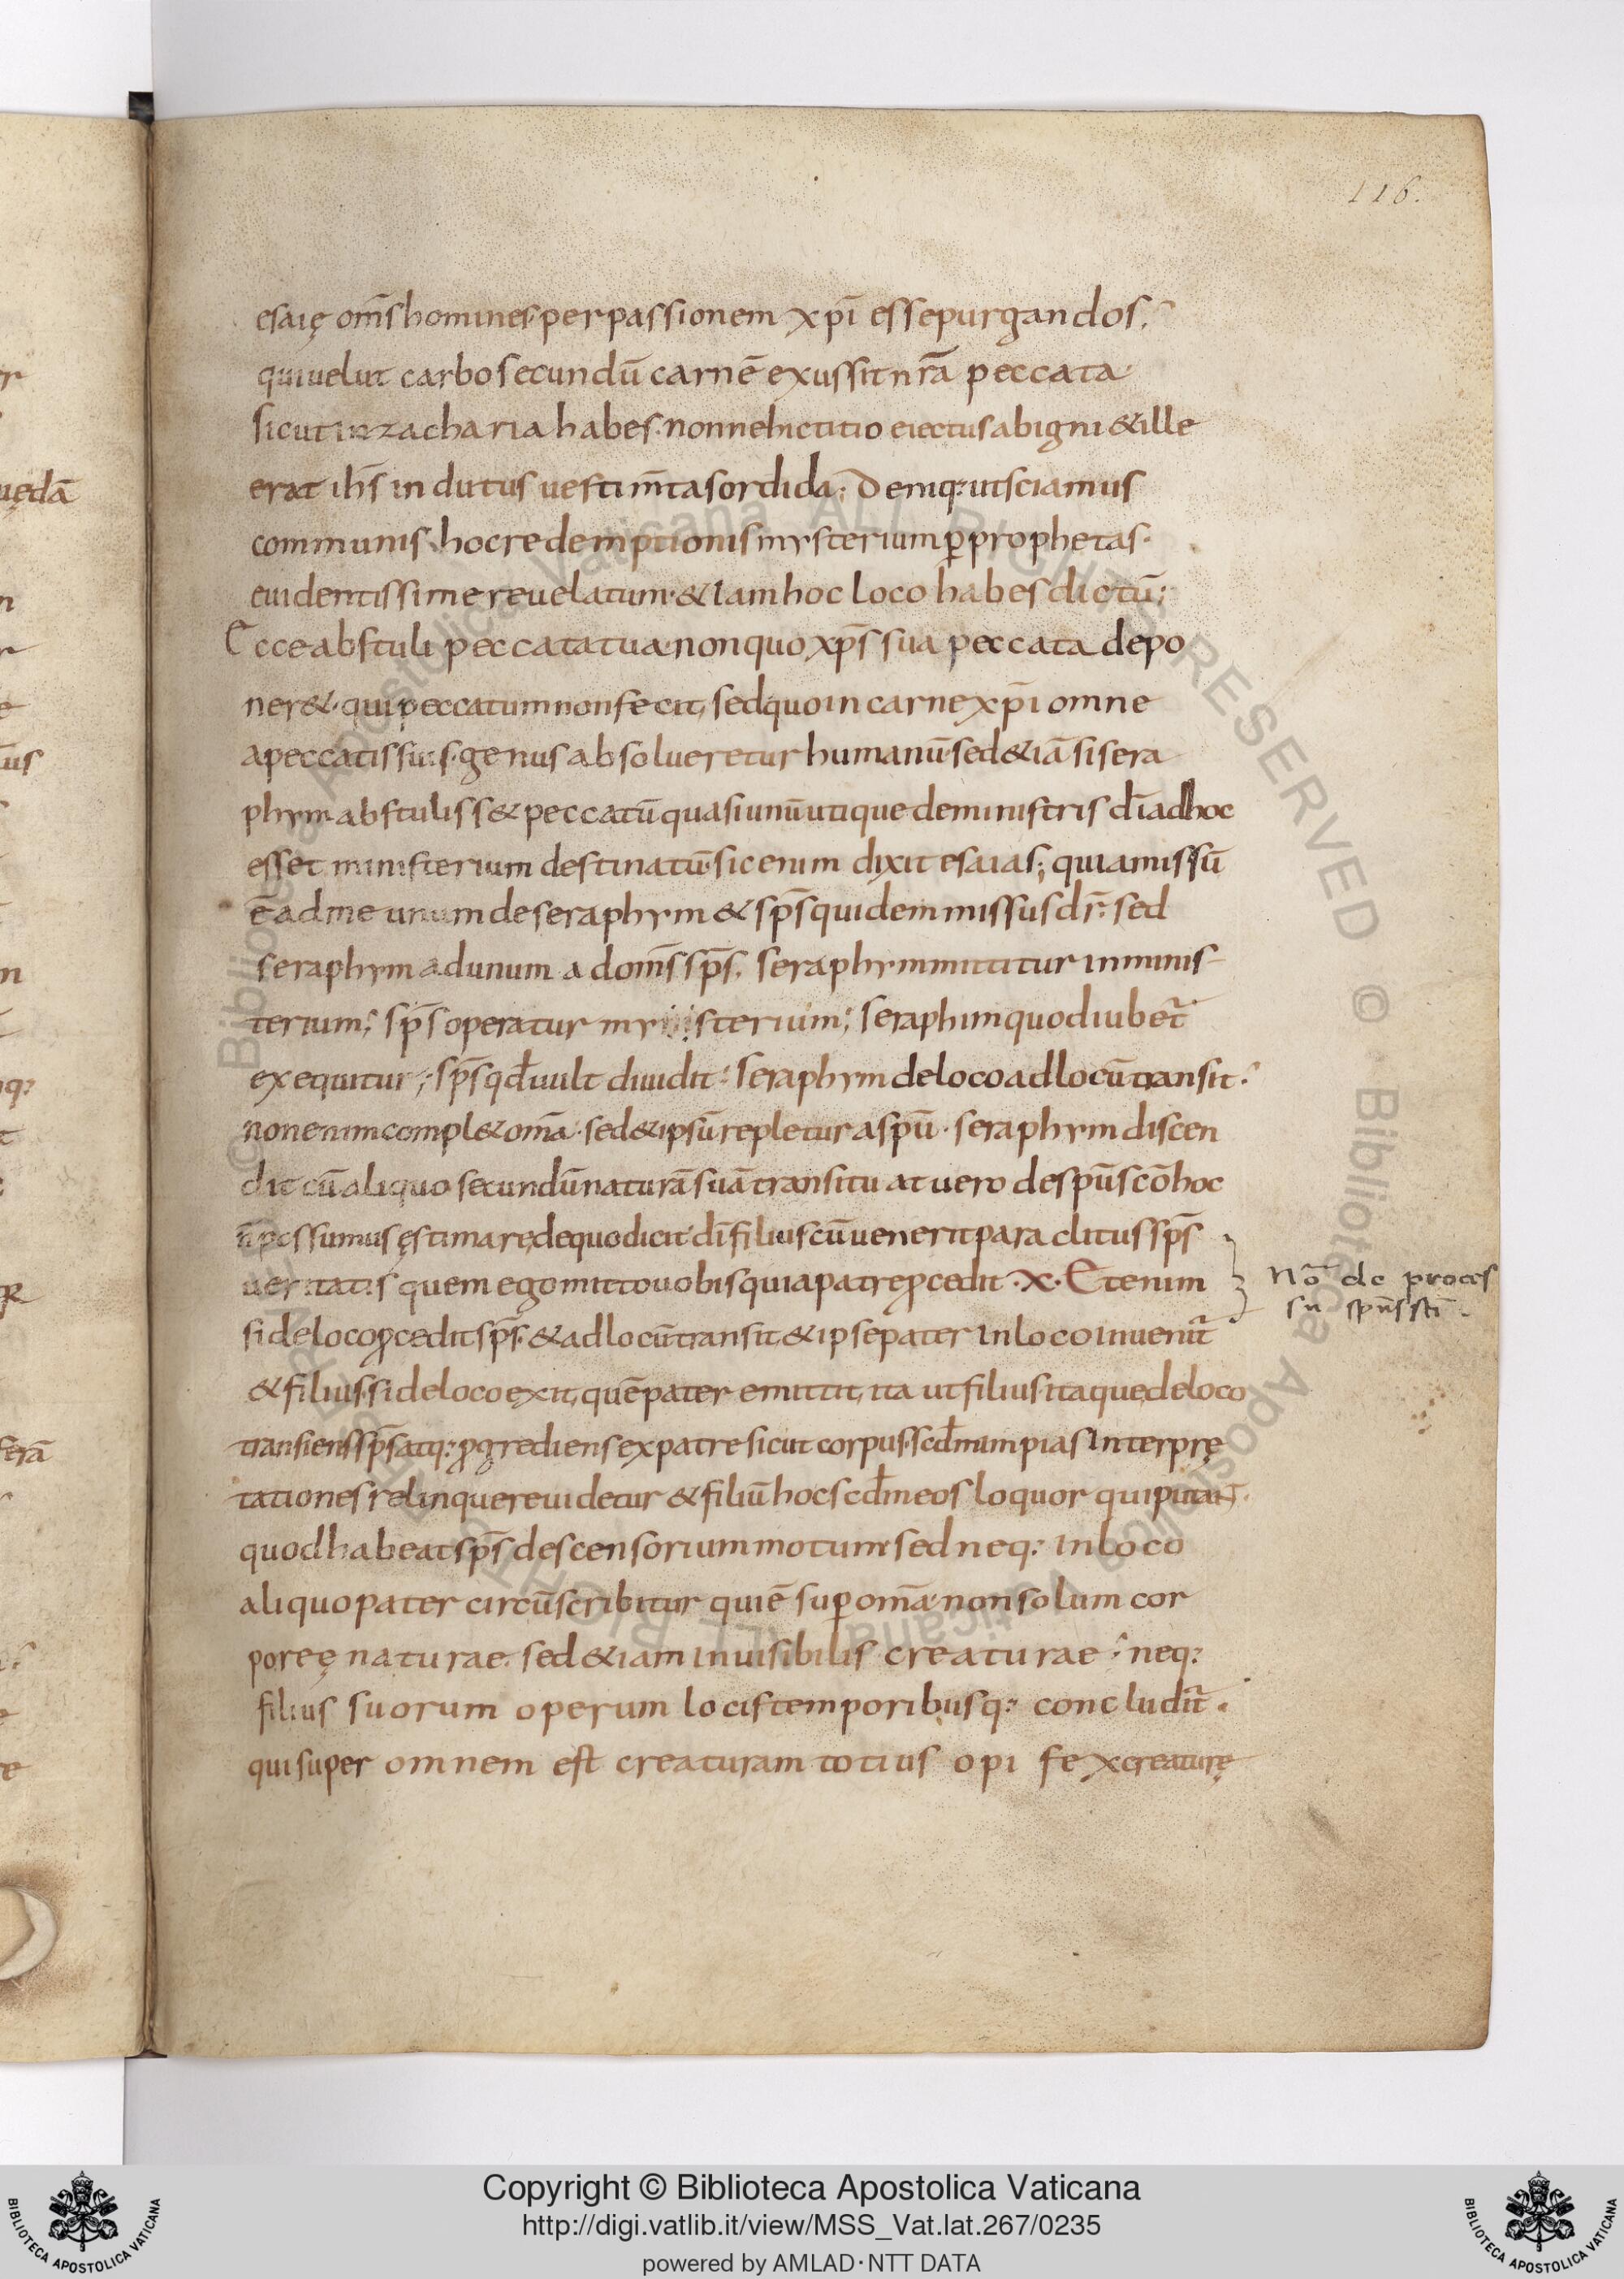 116.
esaię om̄s homines per passionem xp̄i esse purgandos.
qui uelut carbo secundū carnē exussit nr̄a peccata·
sicut in zacharia habes· nonne hic titio eiectus ab igni & ille
erat ih̄s indutus uestim̄ta sordida; Deniq: ut sciamus
communis hoc redemptionis mysterium ꝑ prophetas·
euidentissime reuelatum· & iam hoc loco habes dictū;
Ecce abstuli peccata tua· non quo xp̄s sua peccata depo
ner&· qui peccatum non fecit, sed quo in carne xp̄i omne
a peccatis suis· genus absolueretur humanū· sed &iā si sera
phym abstuliss& peccatū quasi unū utique de ministris dī ad hoc
esset ministerium destinatū· sic enim dixit esaias; quia missū
ē ad me unum de seraphym & sp̄s quidem missus dr̄: sed
seraphym ad unum a dom̄s sp̄s. seraphym mittitur in minis
terium; sp̄s operatur my sterium; seraphim quod iubet̄
exequitur; sp̄s qđ uult diuidit: seraphym de loco ad locū transit.
non enim compl& om̄a· sed & ipsū repletur a spū· seraphym discen
dit cū aliquo secundū naturā suā transitu at uero de spū scō hoc
n̄ possumus ęstimare, de quo dicit dī filius cū uenerit paraclitus sp̄s
ueritatis quem ego mitto uobis qui a patre ꝓcedit · X · Etenim
si de loco ꝓcedit sp̄s· & ad locū transit, & ipse pater in loco inuenit̄
& filius· si de loco exit, quē pater emittit, ita ut filius· itaque de loco
transiens sp̄s atq: ꝓgrediens ex patre sicut corpus· scđm impias interprę
tationes relinquere uidetur & filiū hoc scđm eos loquor qui putant
quod habeat sp̄s descensorium motum· sed neq: in loco
aliquo pater circūscribitur qui ē suꝑ om̄a· non solum cor
poreę naturae· sed &iam inuisibilis creaturae· neq:
filius suorum operum locis temporibusq: concludit̄.
qui super omnem est creaturam totius opi fex creaturę
Nō de proces
su spūs sti .
Copyright © Biblioteca Apostolica Vaticana
http://digi.vatlib.it/view/MSS_Vat.lat.267/0235
powered by AMLAD·NTT DATA